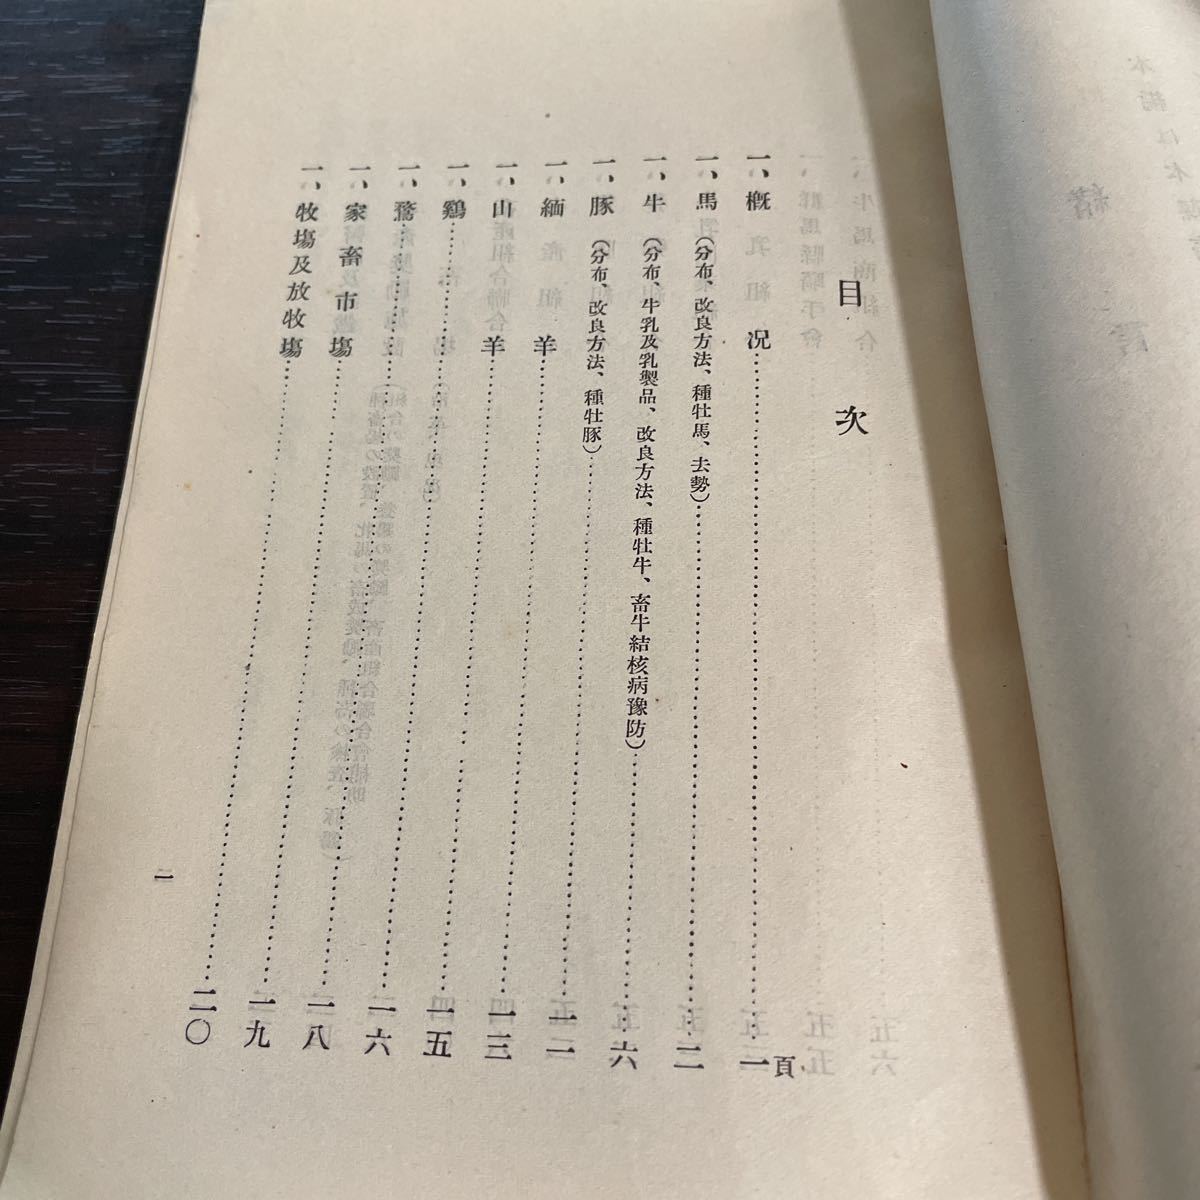 目次
一、槪况……一頁
一、馬（分布、改良方法、種牡馬、去勢）……二
一、牛（分布、牛乳及乳製品、改良方法、種牡牛、畜牛結核病豫防）……六
一、豚（分布、改良方法、種牡豚）……一一
一、緬羊……一三
一、山羊……一五
一、鷄……一六
一、鶩……一八
一、家畜市塲……一九
一、牧塲及放牧塲……二〇